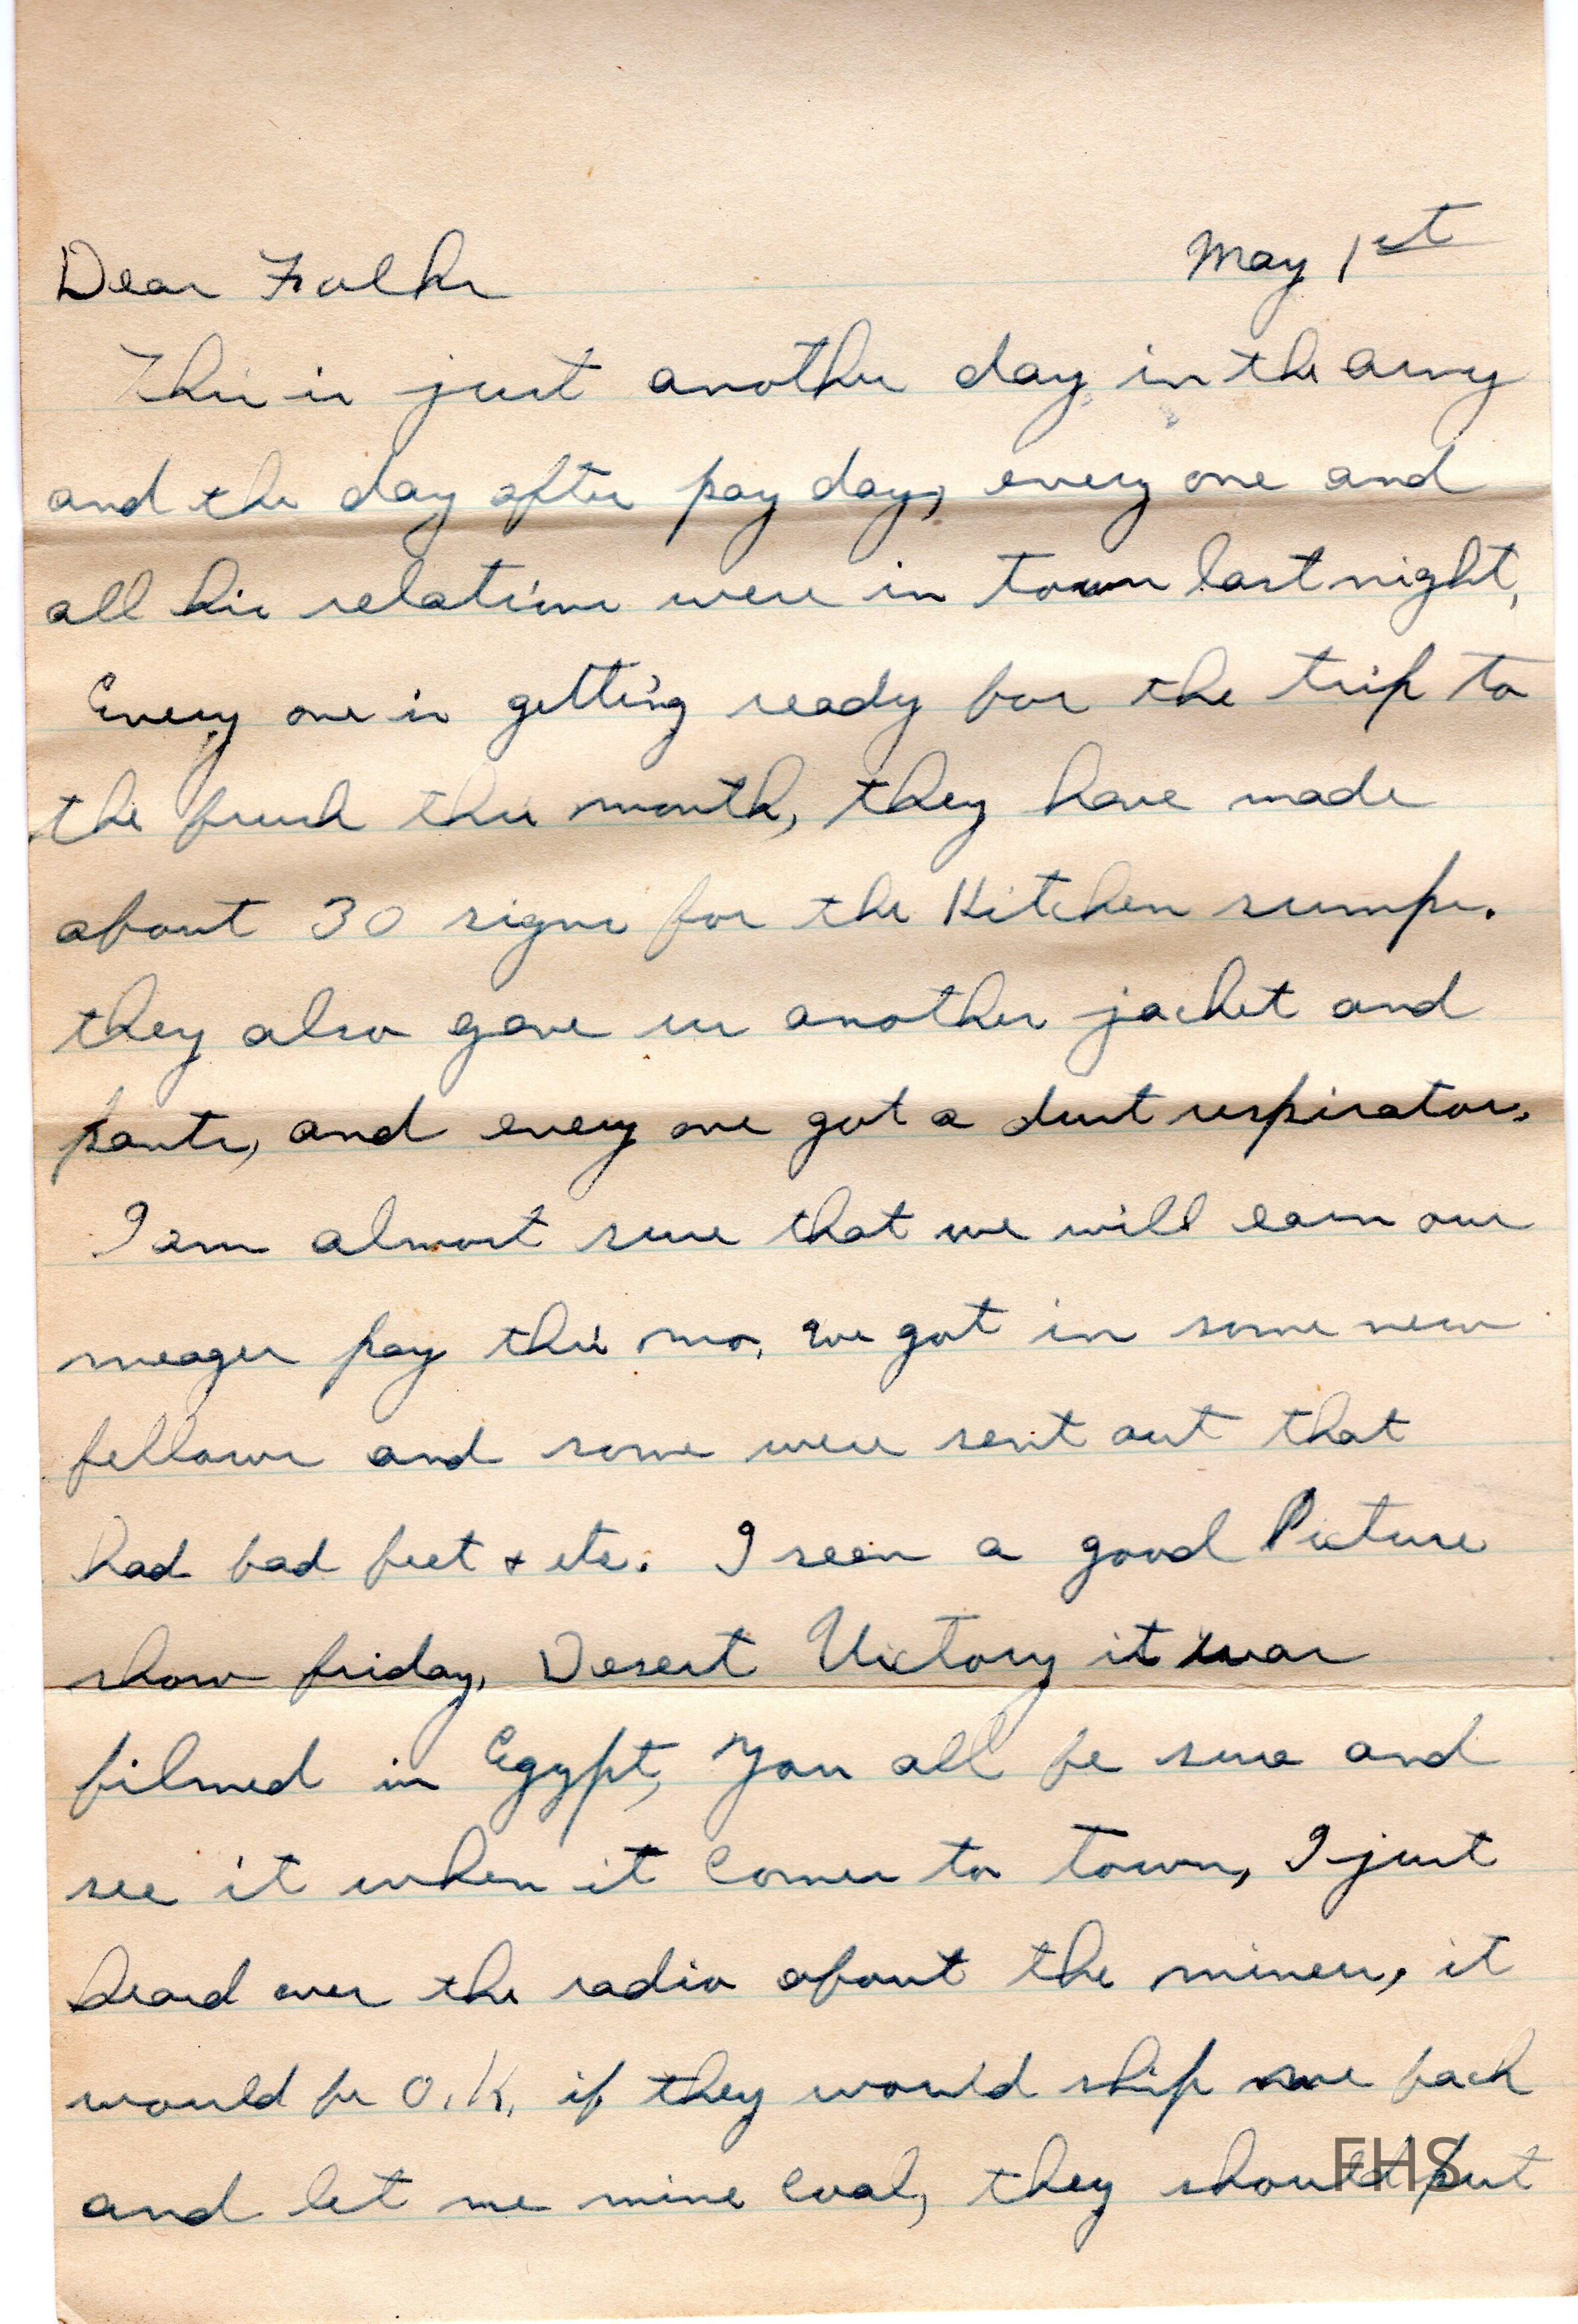 May 1st
Dear Folks
This is just another day in the army
and the day after pay day, every one and
all his relations were in town last night,
Every one is getting ready for the trip to
the brush this month, they have made
about 30 signs for the Kitchen sumps.
they also gave us another jacket and
pants, and every one got a dust respirator.
I am almost sure that we will earn our
meager pay this mo. we got in some new
fellows and some were sent out that
had bad feet + etc. I seen a good Picture
show friday, Desert Victory it was
filmed in Egypt, You all be sure and
see it when it comes to town, I just
heard over the radio about the miners, it
would be O.K. if they would ship me back
and let me mine coal, they should put
FHS